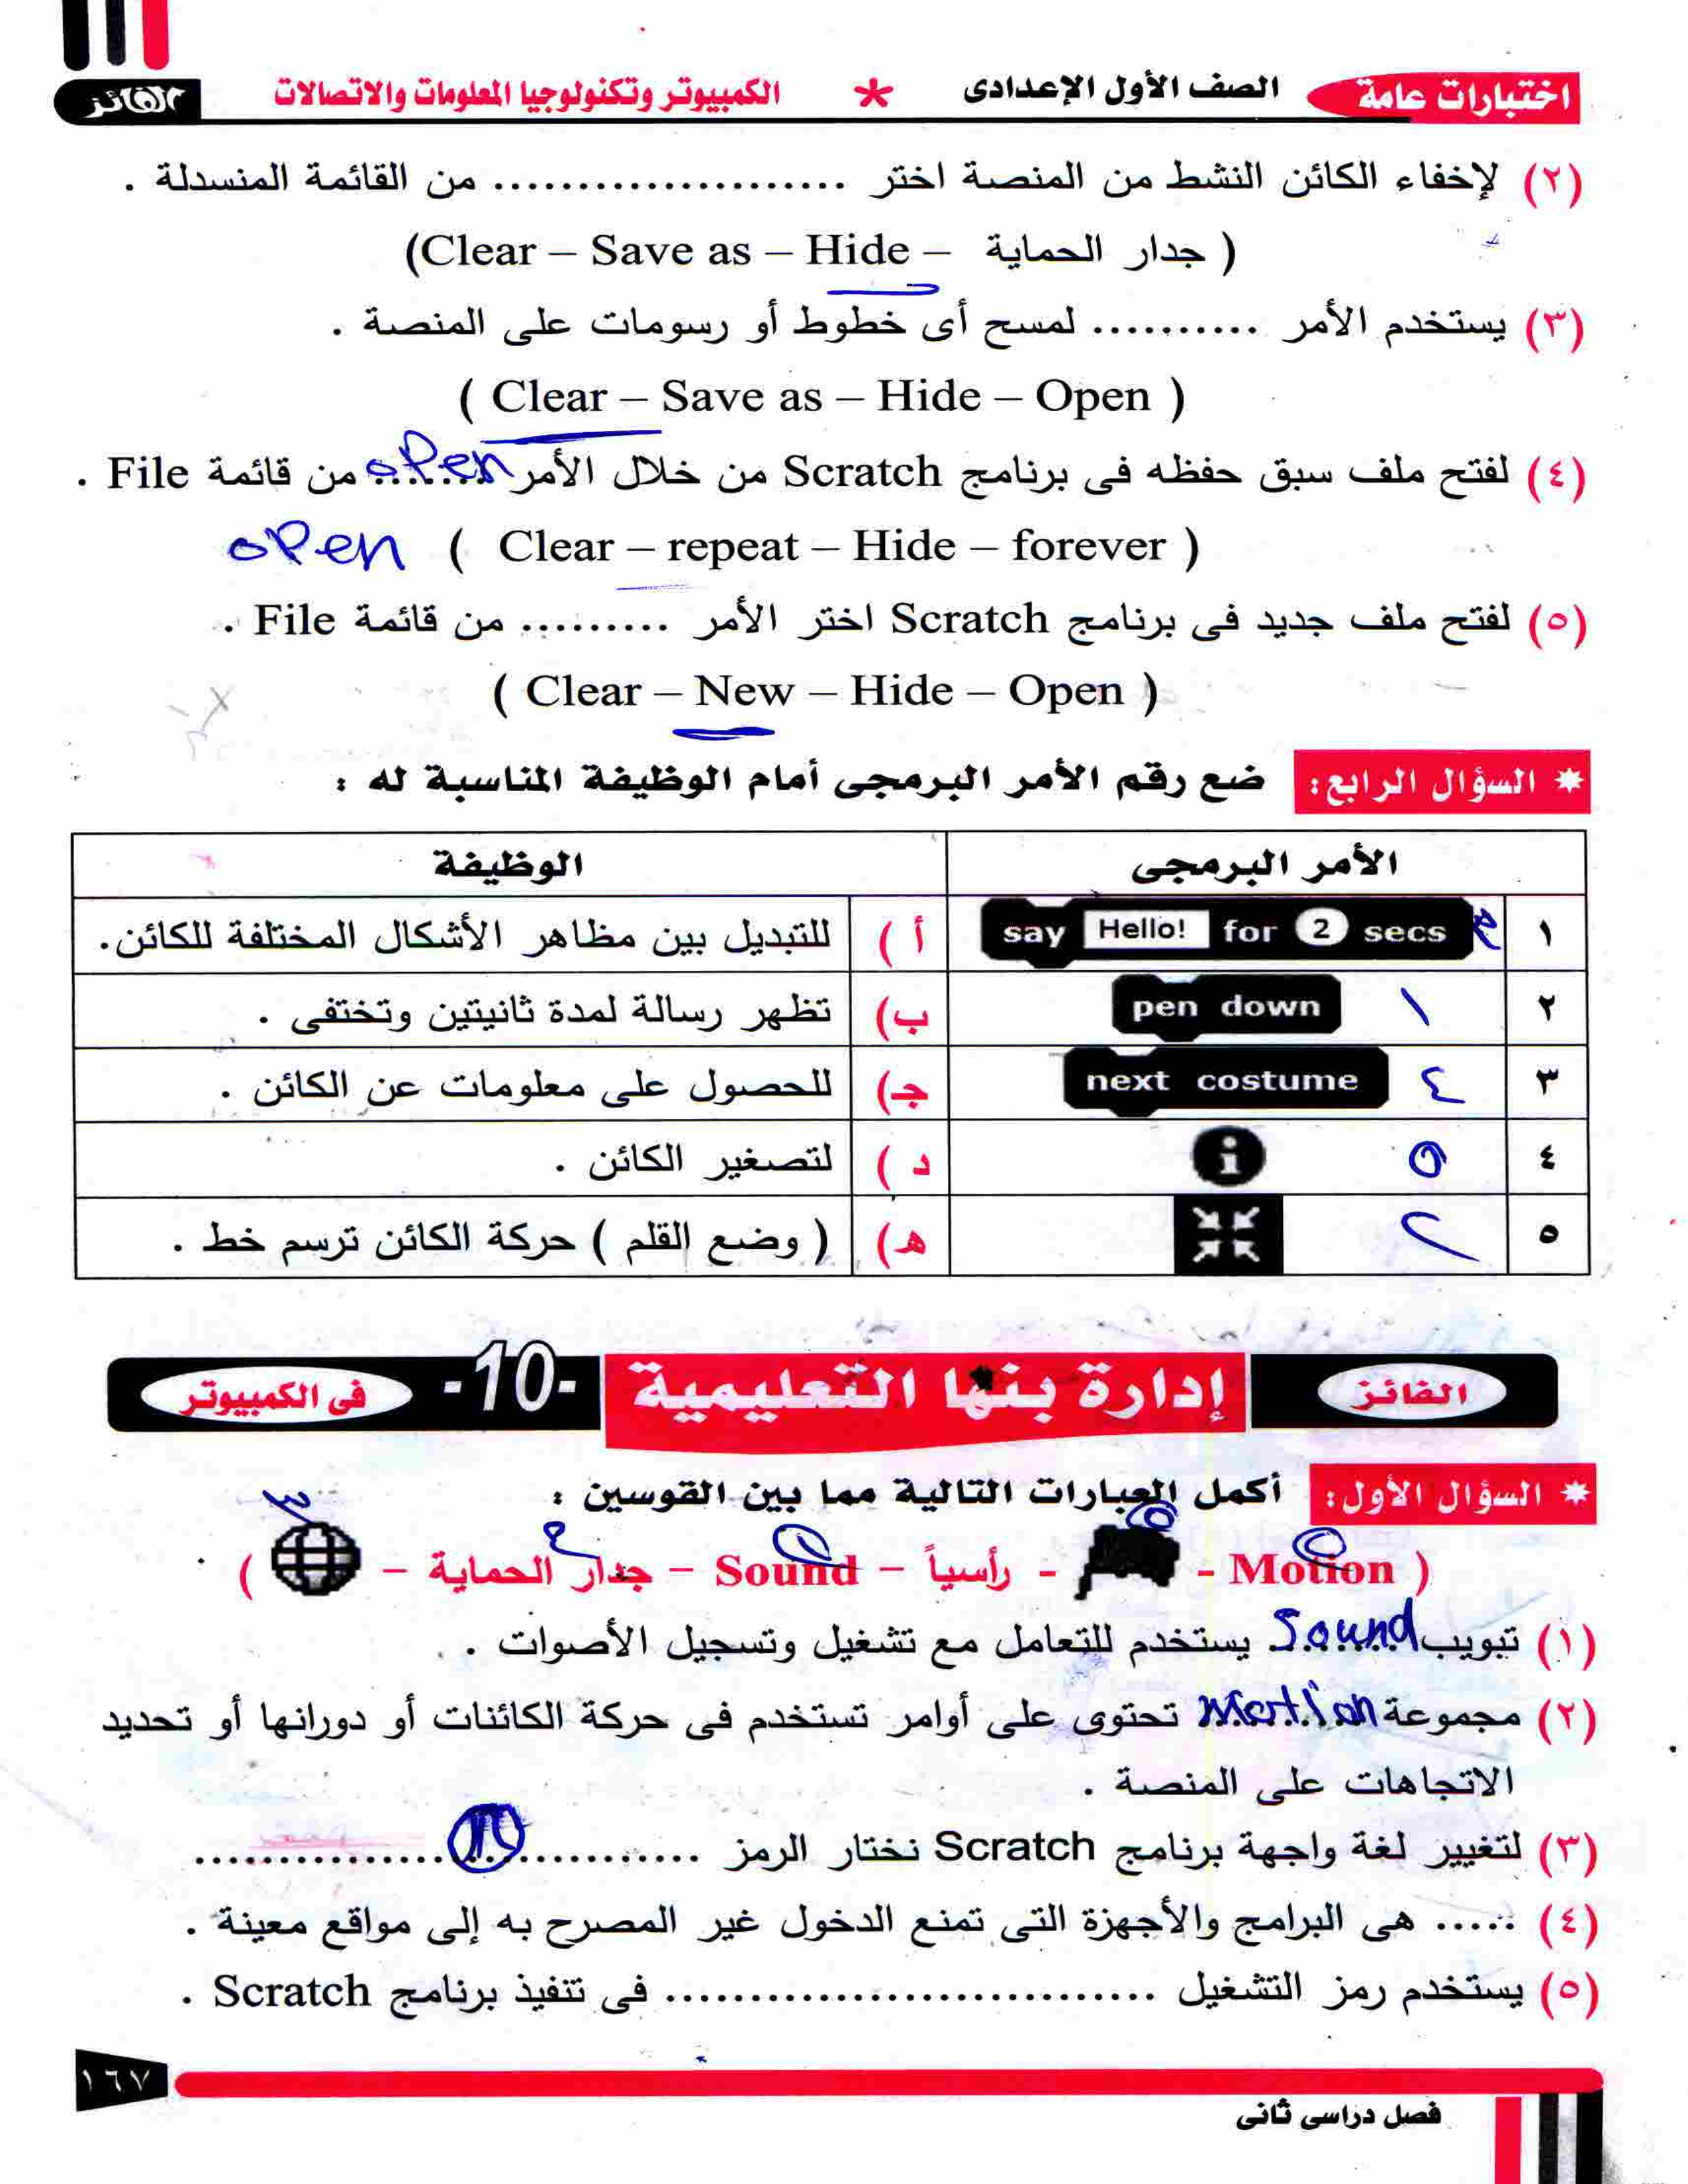 اختبارات عامة الصف الأول الإعدادى * الكمبيوتر وتكنولوجيا المعلومات والاتصالات الفائز
(٢) لإخفاء الكائن النشط من المنصة اختر ...................... من القائمة المنسدلة .
( جدار الحماية – Clear – Save as – Hide)
(٣) يستخدم الأمر ........... لمسح أى خطوط أو رسومات على المنصة .
( Clear – Save as – Hide – Open )
(٤) لفتح ملف سبق حفظه فى برنامج Scratch من خلال الأمر open من قائمة File .
open ( Clear – repeat – Hide – forever )
(٥) لفتح ملف جديد فى برنامج Scratch اختر الأمر ......... من قائمة File .
( Clear – New – Hide – Open )
* السؤال الرابع: ضع رقم الأمر البرمجى أمام الوظيفة المناسبة له :
الأمر البرمجى الوظيفة
١ say Hello! for 2 secs أ ) للتبديل بين مظاهر الأشكال المختلفة للكائن.
٢ ١ pen down ب) تظهر رسالة لمدة ثانيتين وتختفى .
٣ ٤ next costume جـ) للحصول على معلومات عن الكائن .
٤ ٥ i د ) لتصغير الكائن .
٥ ٢ هـ) ( وضع القلم ) حركة الكائن ترسم خط .
الفائز إدارة بنها التعليمية -10- فى الكمبيوتر
* السؤال الأول: أكمل العبارات التالية مما بين القوسين :
٣
( Motion - - رأسياً – Sound – جدار الحماية – )
(١) تبويب Sound يستخدم للتعامل مع تشغيل وتسجيل الأصوات .
(٢) مجموعة تحتوى على أوامر تستخدم فى حركة الكائنات أو دورانها أو تحديد
الاتجاهات على المنصة .
(٣) لتغيير لغة واجهة برنامج Scratch نختار الرمز ..............................
(٤) ..... هى البرامج والأجهزة التى تمنع الدخول غير المصرح به إلى مواقع معينة .
(٥) يستخدم رمز التشغيل .............................. فى تنفيذ برنامج Scratch .
١٦٧
فصل دراسى ثانى